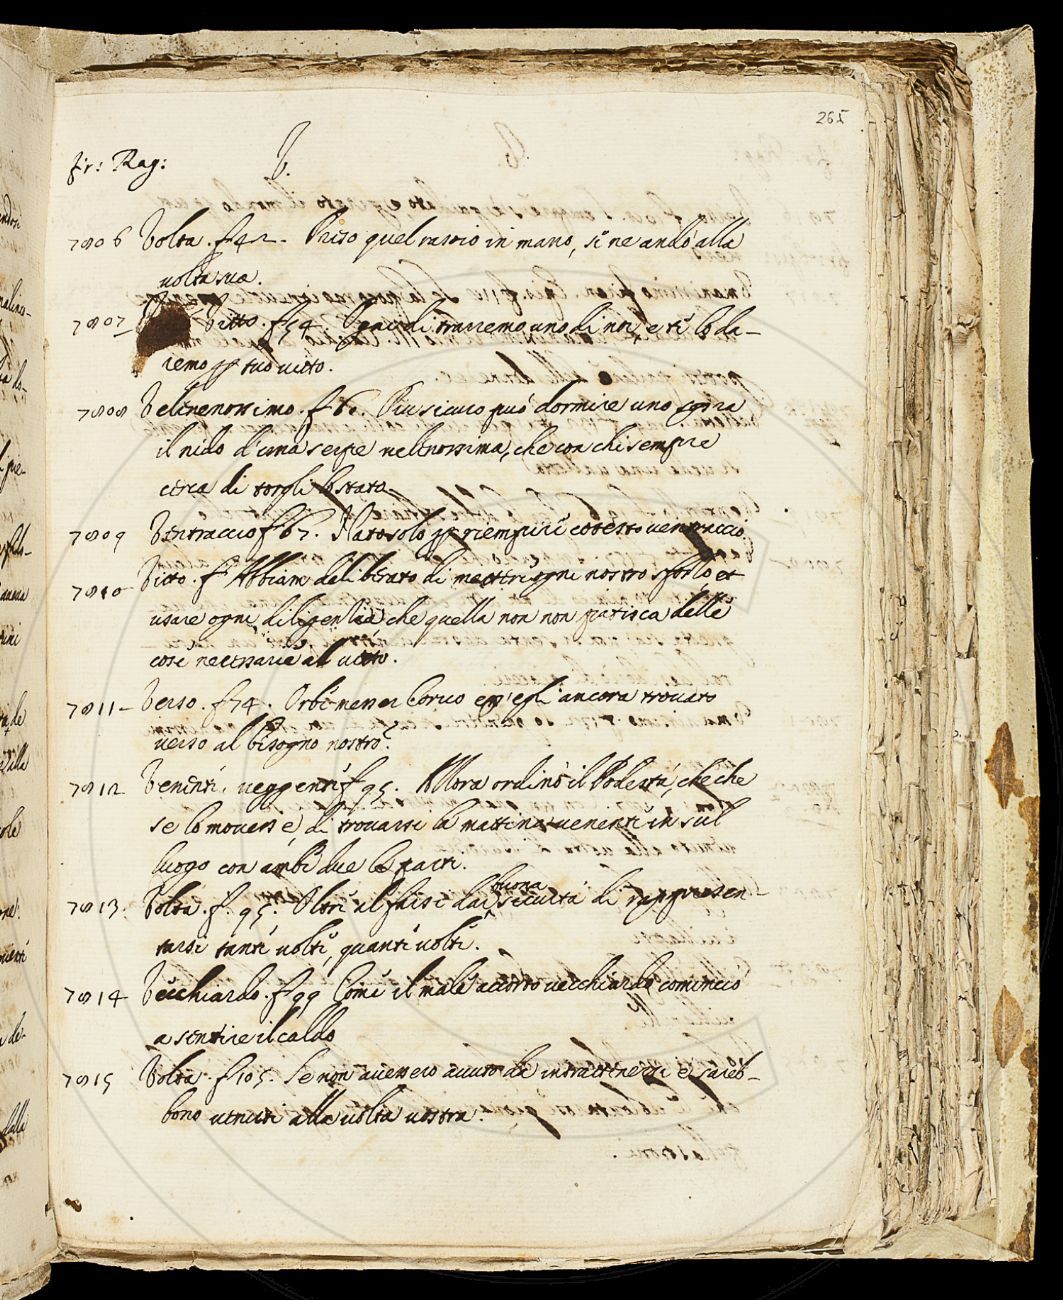 265
fir: Rag: V.
7806 Volta. f 42. Preso quel rascio in mano, si ne andò alla
volta sua.
7807 Vitto. f 54. trarremo uno di noi, e ti lo da-
remo per tuo vitto.
7808 Velenenossimo. f 61. Piu sicuro può dormire uno sopra
il nido d'una serpe velenossima, che con chi sempre
cerca di torgli lo stato
7809 Ventraccio f 67. Nato solo per riempire cotesto ventraccio.
7810 Vitto. f Abbiam deliberato di mettere ogni nostro sforzo et
usare ogni diligentia che quella non non patisca delle
cose necessarie al vitto.
7811- Verso. f 74. Orbi ancora trovato
verso al bisogno nostro?
7812 Venenti, veggenti f 95. Allora ordinò il Podestà, che che
se lo movesse di trovarsi la mattina venente in sul
luogo con ambi due le parti.
7813. Volta. f. 95. Oltre al farsi dar buona sicurtà di rappresen
tarsi tante volte, quante volte.
7814 Vecchiardo. f 99 Come il male accorto vecchiardo cominciò
a sentire il caldo
7815 Volta. f 105. Se non avessero avuto da intrattenersi e sareb-
bono venuti alla volta vostra.